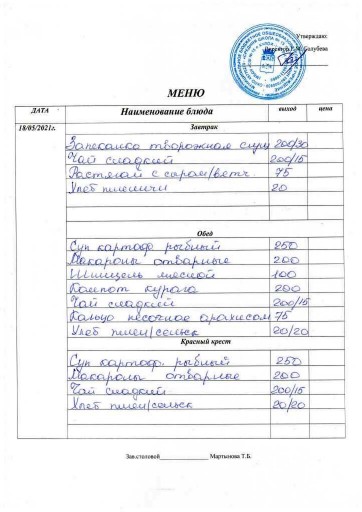 Утверждаю:
Директор Г.М. Голубева
МЕНЮ
ДАТА Наименование блюда выход цена
18/05/2021г. Завтрак
Запеканка творожная сгущ 200/30
Чай сладкий 200/15
Растягай с сыром/ветч. 75
Хлеб пшенични 20
Обед
Суп картоф рыбный 250
Макароны отварные 200
Шницель мясной 100
Компот курага 200
Чай сладкий 200/15
Кольцо песочное арахисом 75
Хлеб пшен/сельск 20/20
Красный крест
Суп картоф. рыбный 250
Макароны отварные 200
Чай сладкий 200/15
Хлеб пшен/сельск 20/20
Зав.столовой Мартынова Т.Б.